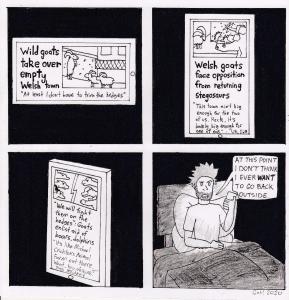 Wild goats
take over
empty
Welsh town
"At least I don't have to trim the hedges"
Welsh goats
face opposition
from returning
stegosaurs
"This town ain't big
enough for the two
of us. Heck, it's
barely big enough for
one of
"We will fight
them on the
hedges": Goats
enlist aid of
boars, dolphins
"It's like Michael
out there
AT THIS POINT
I DON'T THINK
I EVER WANT
TO GO BACK
OUTSIDE
2020